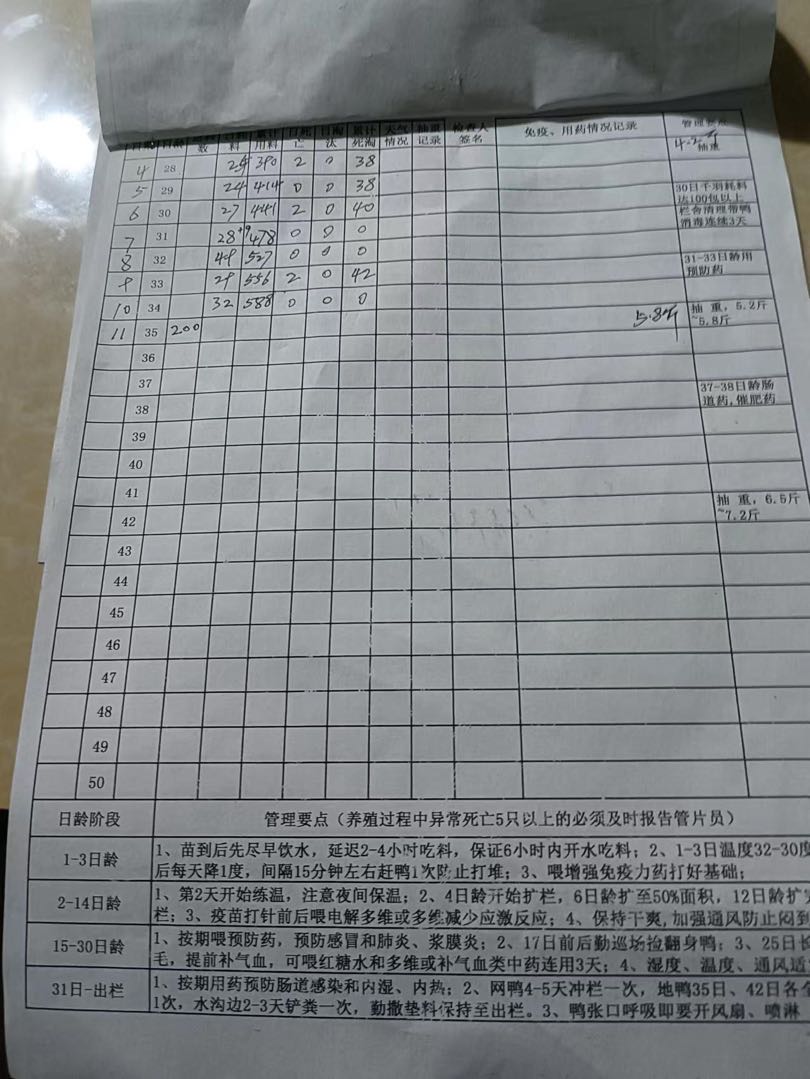 日龄 数 日料 累计用料 日死亡 日淘汰 累计死淘 天气情况 抽重记录 检查人签名 免疫、用药情况记录 管理要点
4 28 24 390 2 0 38 抽重
5 29 24 414 0 0 38 30日千羽耗料达100包以上
6 30 27 441 2 0 40 栏舍清理带鸭消毒连续3天
7 31 28+9 478 0 0 0
8 32 49 527 0 0 0 31-33日龄用预防药
9 33 29 556 2 0 42
10 34 32 588 0 0 0
11 35 200 5.8斤 抽重，5.2斤~5.8斤
36
37 37-38日龄肠道药,催肥药
38
39
40
41
42 抽重，6.5斤~7.2斤
43
44
45
46
47
48
49
50
日龄阶段 管理要点（养殖过程中异常死亡5只以上的必须及时报告管片员）
1-3日龄 1、苗到后先尽早饮水，延迟2-4小时吃料，保证6小时内开水吃料；2、1-3日温度32-30度
后每天降1度，间隔15分钟左右赶鸭1次防止打堆；3、喂增强免疫力药打好基础；
2-14日龄 1、第2天开始练温，注意夜间保温；2、4日龄开始扩栏，6日龄扩至50%面积，12日龄扩
栏；3、疫苗打针前后喂电解多维或多维减少应激反应；4、保持干爽,加强通风防止闷
15-30日龄 1、按期喂预防药，预防感冒和肺炎、浆膜炎；2、17日前后勤巡场捡翻身鸭；3、25日长
毛，提前补气血，可喂红糖水和多维或补气血类中药连用3天；4、湿度、温度、通风适
31日-出栏 1、按期用药预防肠道感染和内湿、内热；2、网鸭4-5天冲栏一次，地鸭35日、42日各
1次，水沟边2-3天铲粪一次，勤撒垫料保持至出栏。3、鸭张口呼吸即要开风扇、喷淋